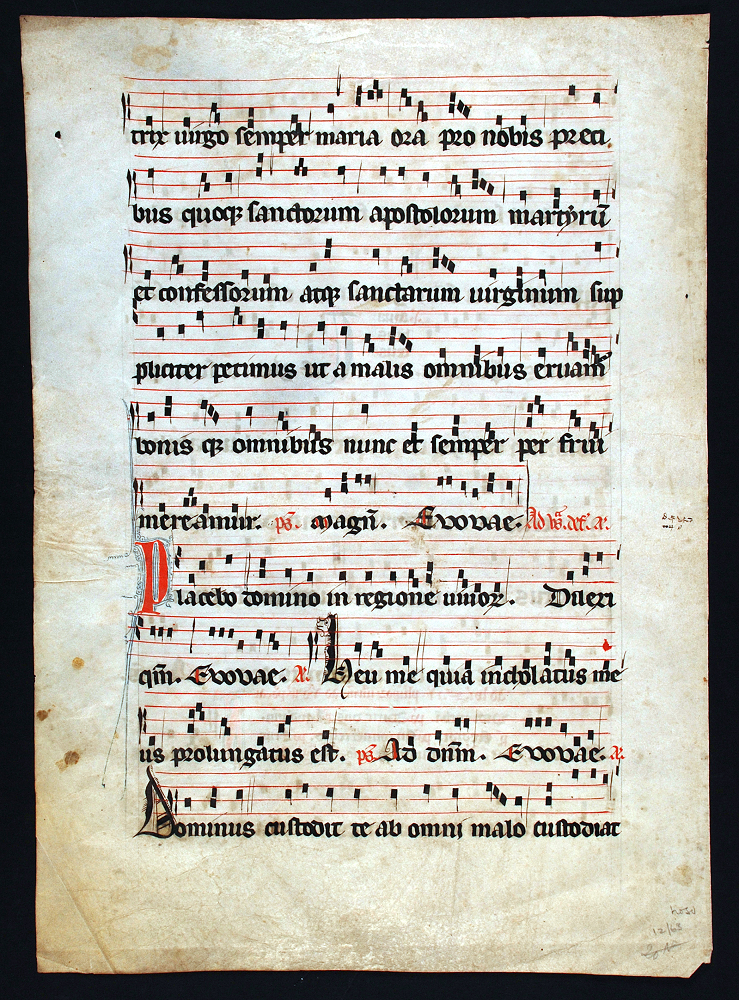 trix uirgo semper maria ora pro nobis preci
bus quoqꝫ sanctorum apostolorum martyrū
et confessorum atqꝫ sanctarum uirginum sup
pliciter petimus ut a malis omnibus eruam
bonis qꝫ omnibus nunc et semper per frui
mereamur. ps. magn̄. Euouae. Ad
Placebo domino in regione uiuoꝝ. Dilexi
qm̄. Euouae. Heu me quia incholatus me
us prolungatus est. ps. Ad dnm̄. Euouae.
Dominus custodit te ab omni malo custodiat
12/63